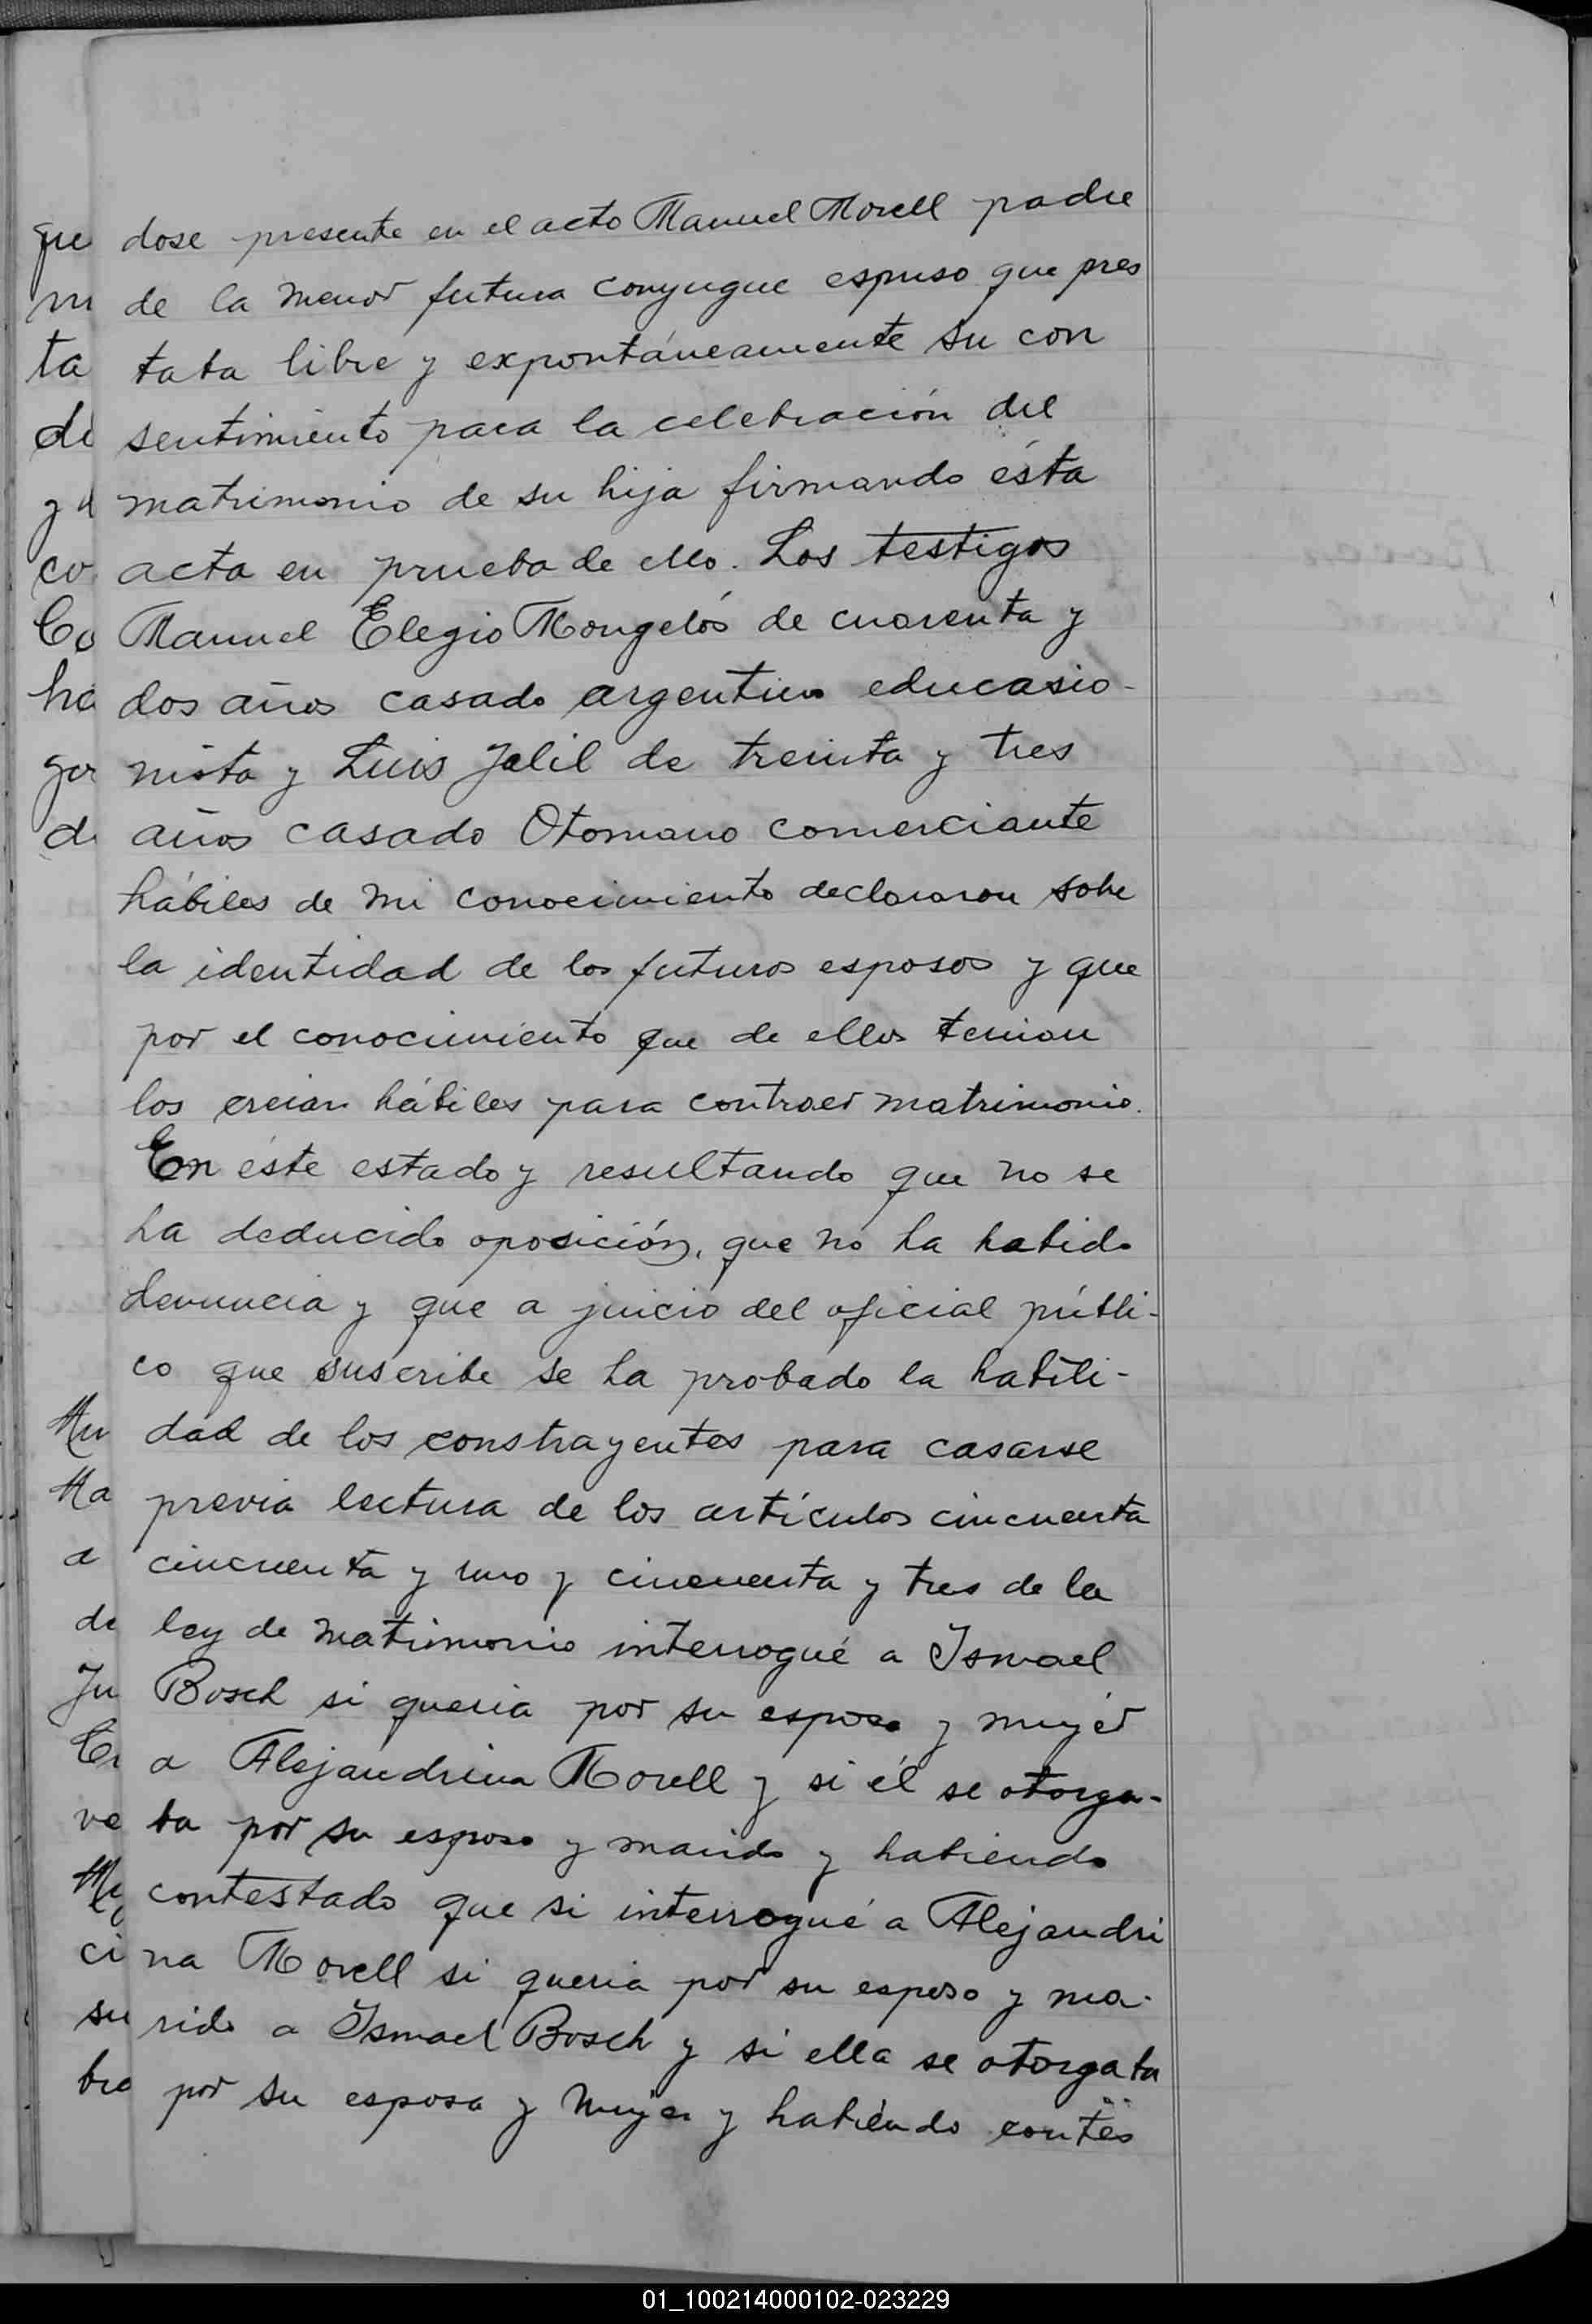 dose presente en el acto Manuel Morell padre
de la menor futura conyugue espuso que pres
taba libre y expontáneamente su con
sentimiento para la celebración del
matrimonio de su hija firmando ésta
acta en prueba de ello. Los testigos
Manuel Elegio Mongelós de cuarenta y
dos años casado argentino educasio-
nista y Luis Jalil de treinta y tres
años casado Otomano comerciante
hábiles de mi conocimiento declararon sobre
la identidad de los futuros esposos y que
por el conocimiento que de ellos tenian
los creian hábiles para contraer matrimonio.
En éste estado y resultando que no se
ha deducido oposición, que no ha habido
denuncia y que a juicio del oficial públi-
co que suscribe se ha probado la habili-
dad de los constrayentes para casarse
previa lectura de los artículos cincuenta
cincuenta y uno y cincuenta y tres de la
ley de matrimonio interrogué a Ismael
Bosch si queria por su esposa y mujer
a Alejandrina Morell y si él se otorga-
ba por su esposo y marido y habiendo
contestado que si interrogué a Alejandri
na Morell si queria por su esposo y ma-
rido a Ismael Bosch y si ella se otorgaba
por su esposa y mujer y habiendo contes
01_100214000102-023229